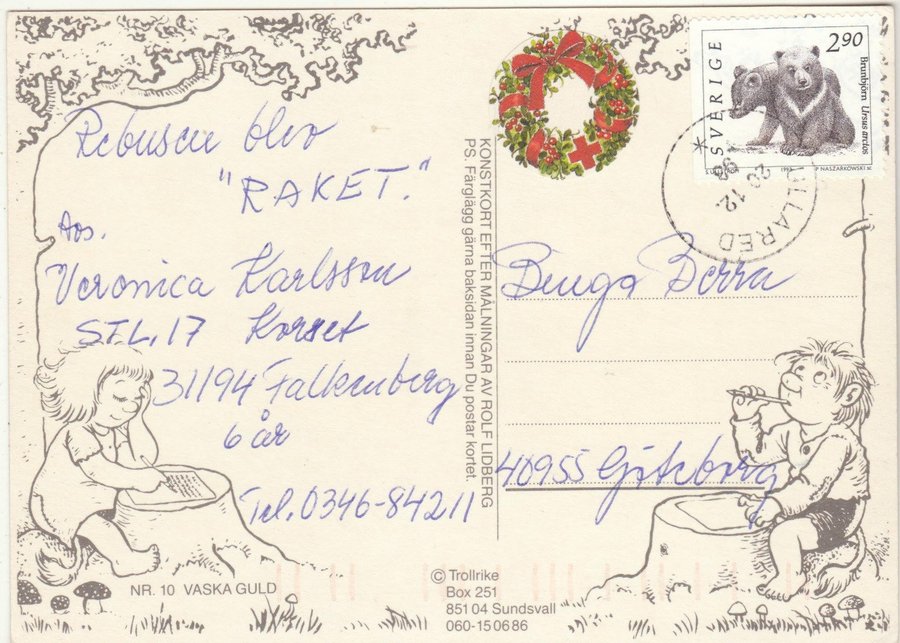 Rebusen blev
"RAKET."
Avs.
Veronica Karlsson
STL. 17 Korset
31194 Falkenberg
6 år
Tel. 0346-84211
KONSTKORT EFTER MÅLNINGAR AV ROLF LIDBERG
PS. Färglägg gärna baksidan innan Du postar kortet.
SVERIGE
2.90
Brunbjörn Ursus arctos
NASZARKOWSKI
20.12.
LLARED
Bingo Berra
40955 Göteborg
NR. 10 VASKA GULD
© Trollrike
Box 251
851 04 Sundsvall
060-15 06 86